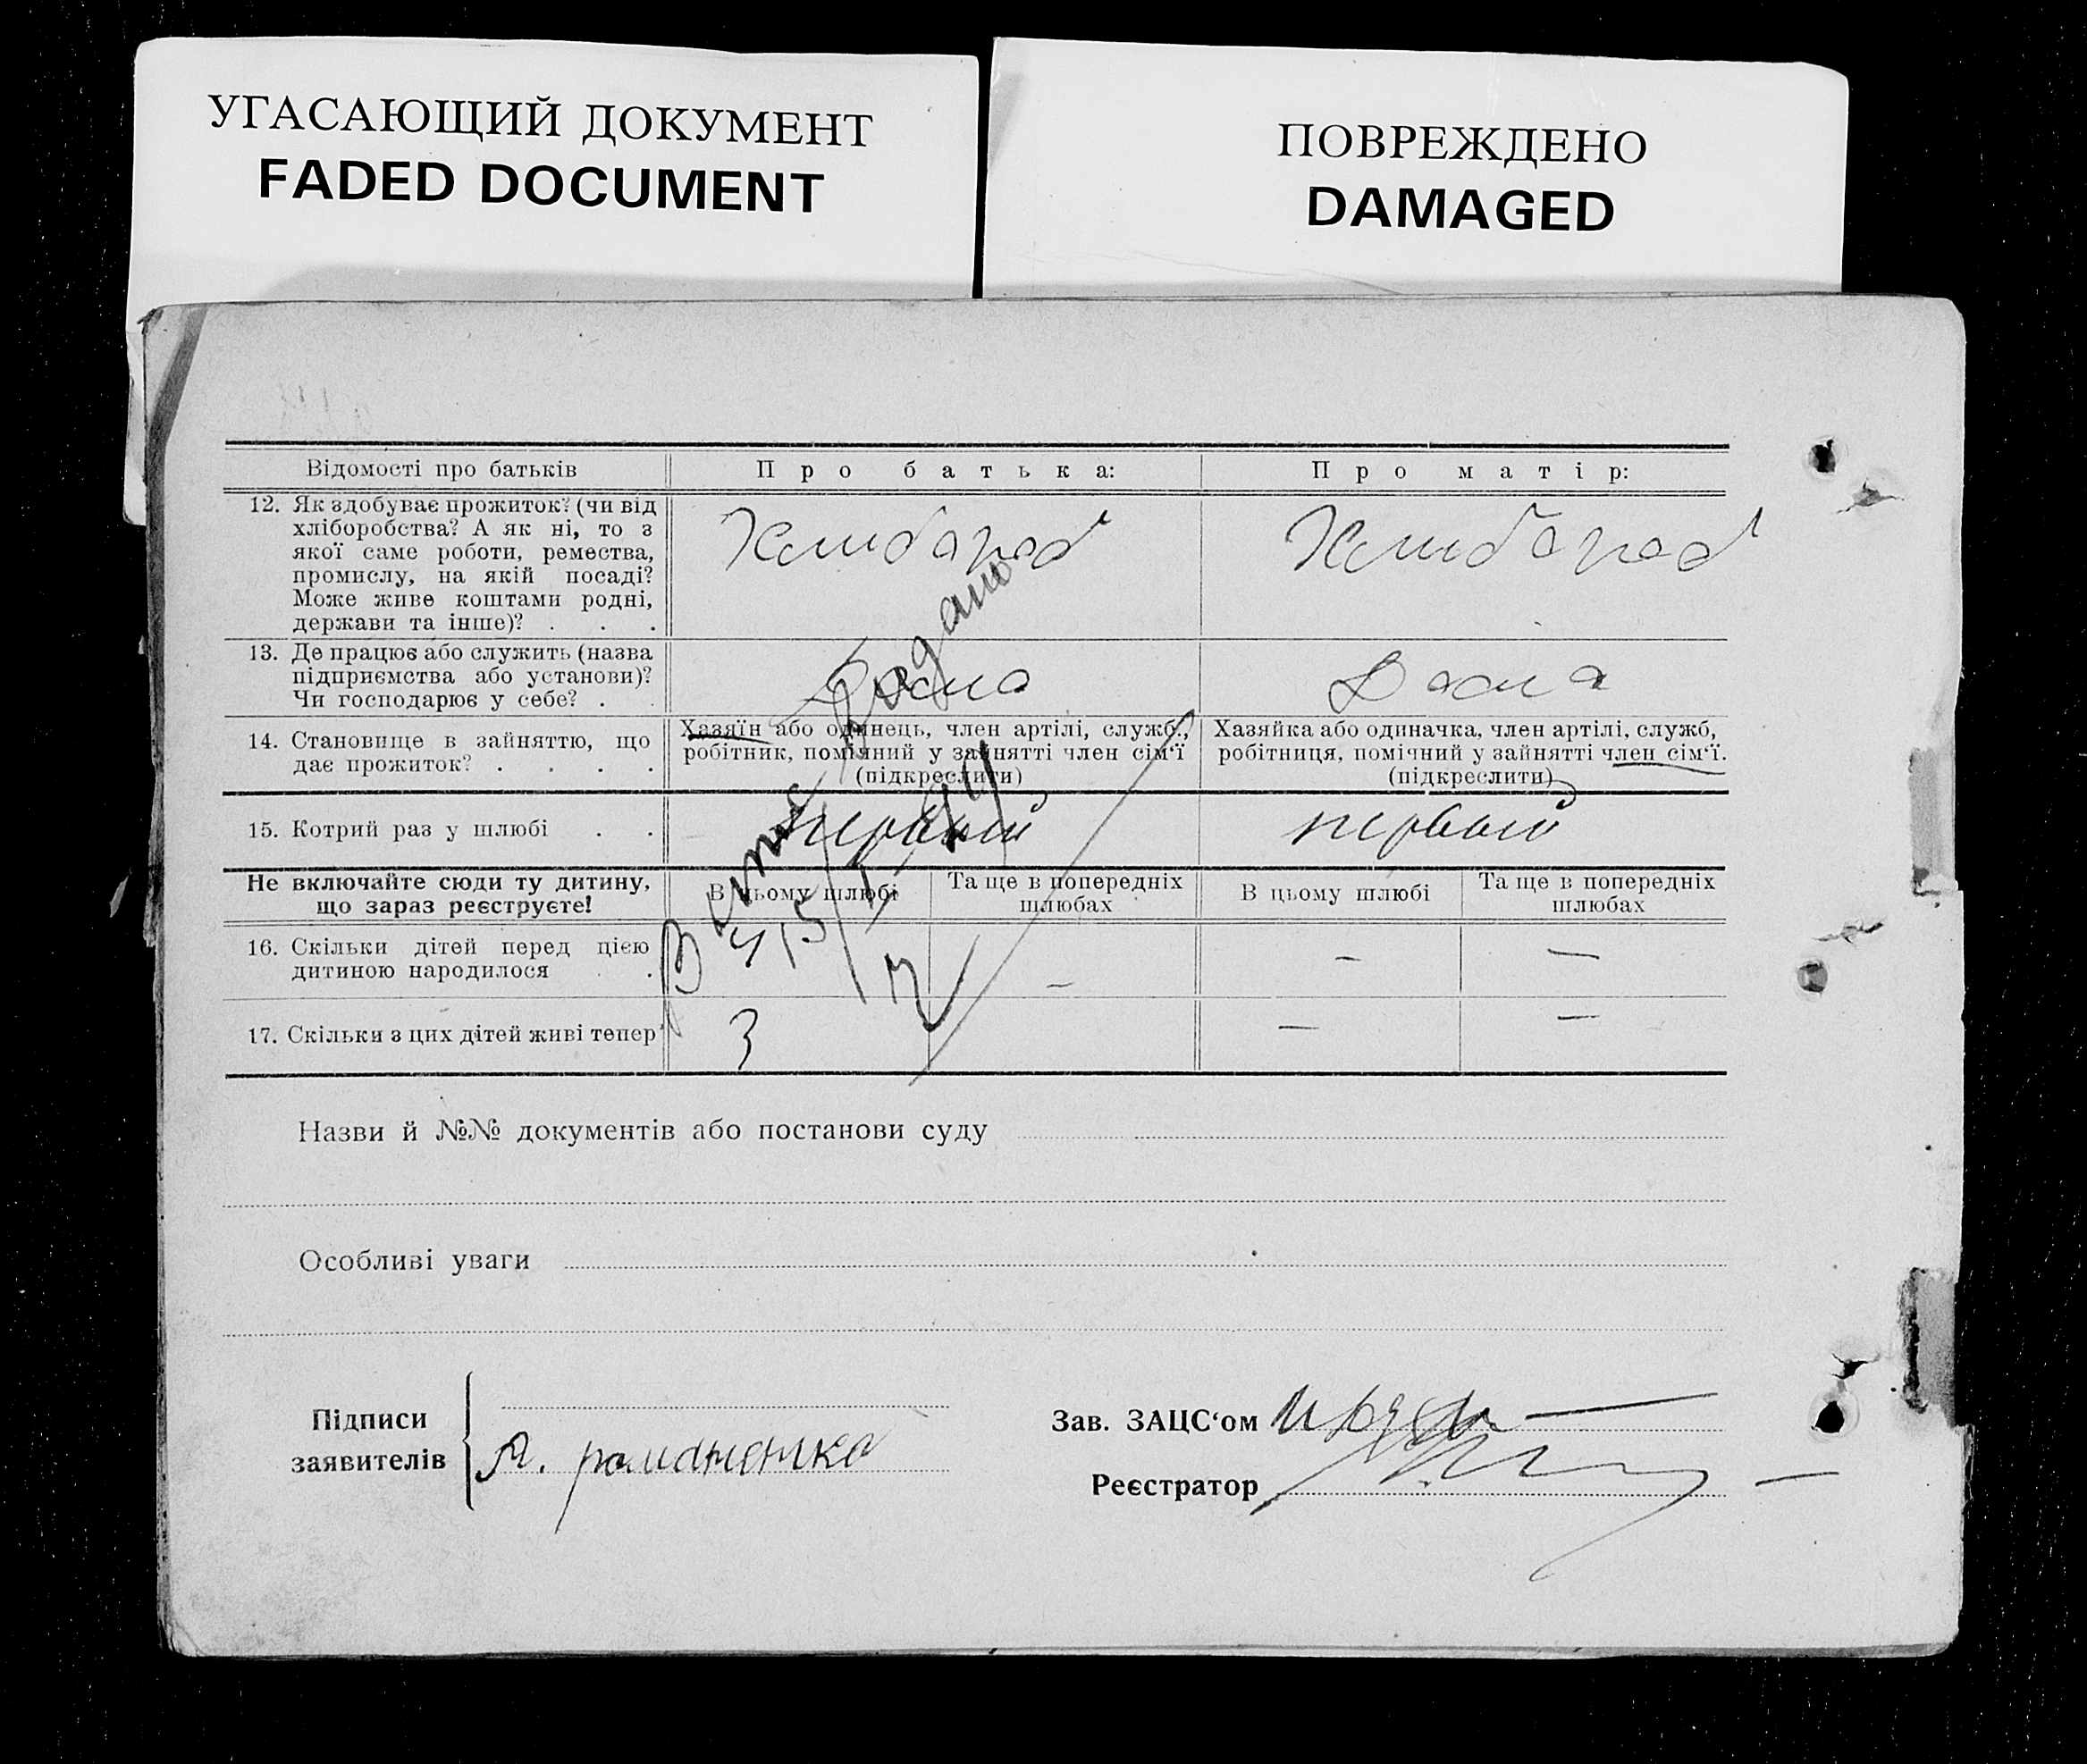 УГАСАЮЩИЙ ДОКУМЕНТ
FADED DOCUMENT
ПОВРЕЖДЕНО
DAMAGED
Відомості про батьків
Про батька:
Про матір:
12. Як здобуває прожиток? (чи від
хліборобства? А як ні, то з
якої саме роботи, ремества,
промислу, на якій посаді?
Може живе коштами родні,
держави та інше)? . . .
Хлибороб
Хлибороб
13. Де працює або служить (назва
підприємства або установи)?
Чи господарює у себе? . .
Дома
Дома
14. Становище в зайняттю, що
дає прожиток? . . . .
Хазяїн або одинець, член артілі, служб.,
робітник, помічний у зайнятті член сім‘ї
(підкреслити)
Хазяйка або одиначка, член артілі, служб,
робітниця, помічний у зайнятті член сім‘ї.
(підкреслити)
15. Котрий раз у шлюбі . .
первий
первий
Не включайте сюди ту дитину,
що зараз реєструєте!
В цьому шлюбі
Та ще в попередніх
шлюбах
В цьому шлюбі
Та ще в попередніх
шлюбах
16. Скільки дітей перед цією
дитиною народилося . .
4
–
–
—
17. Скільки з цих дітей живі тепер
3
—
—
видано
Назви й №№ документів або постанови суду
Особливі уваги
Підписи
заявителів
Я. романенко
Зав. ЗАЦС‘ом
Реєстратор